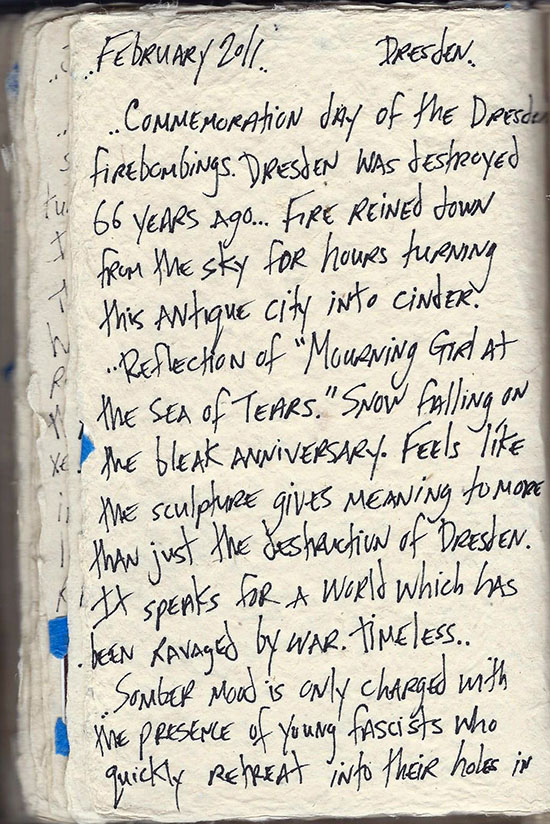 ..February 2011.. Dresden.
..Commemoration day of the Dresden
firebombings. Dresden was destroyed
66 years ago... Fire reined down
from the sky for hours turning
this antique city into cinder.
..Reflection of "Mourning Girl at
the Sea of Tears." Snow falling on
the bleak anniversary. Feels like
the sculpture gives meaning to more
than just the destruction of Dresden.
It speaks for a world which has
been ravaged by war. timeless..
..Somber mood is only charged with
the presence of young fascists who
quickly retreat into their holes in